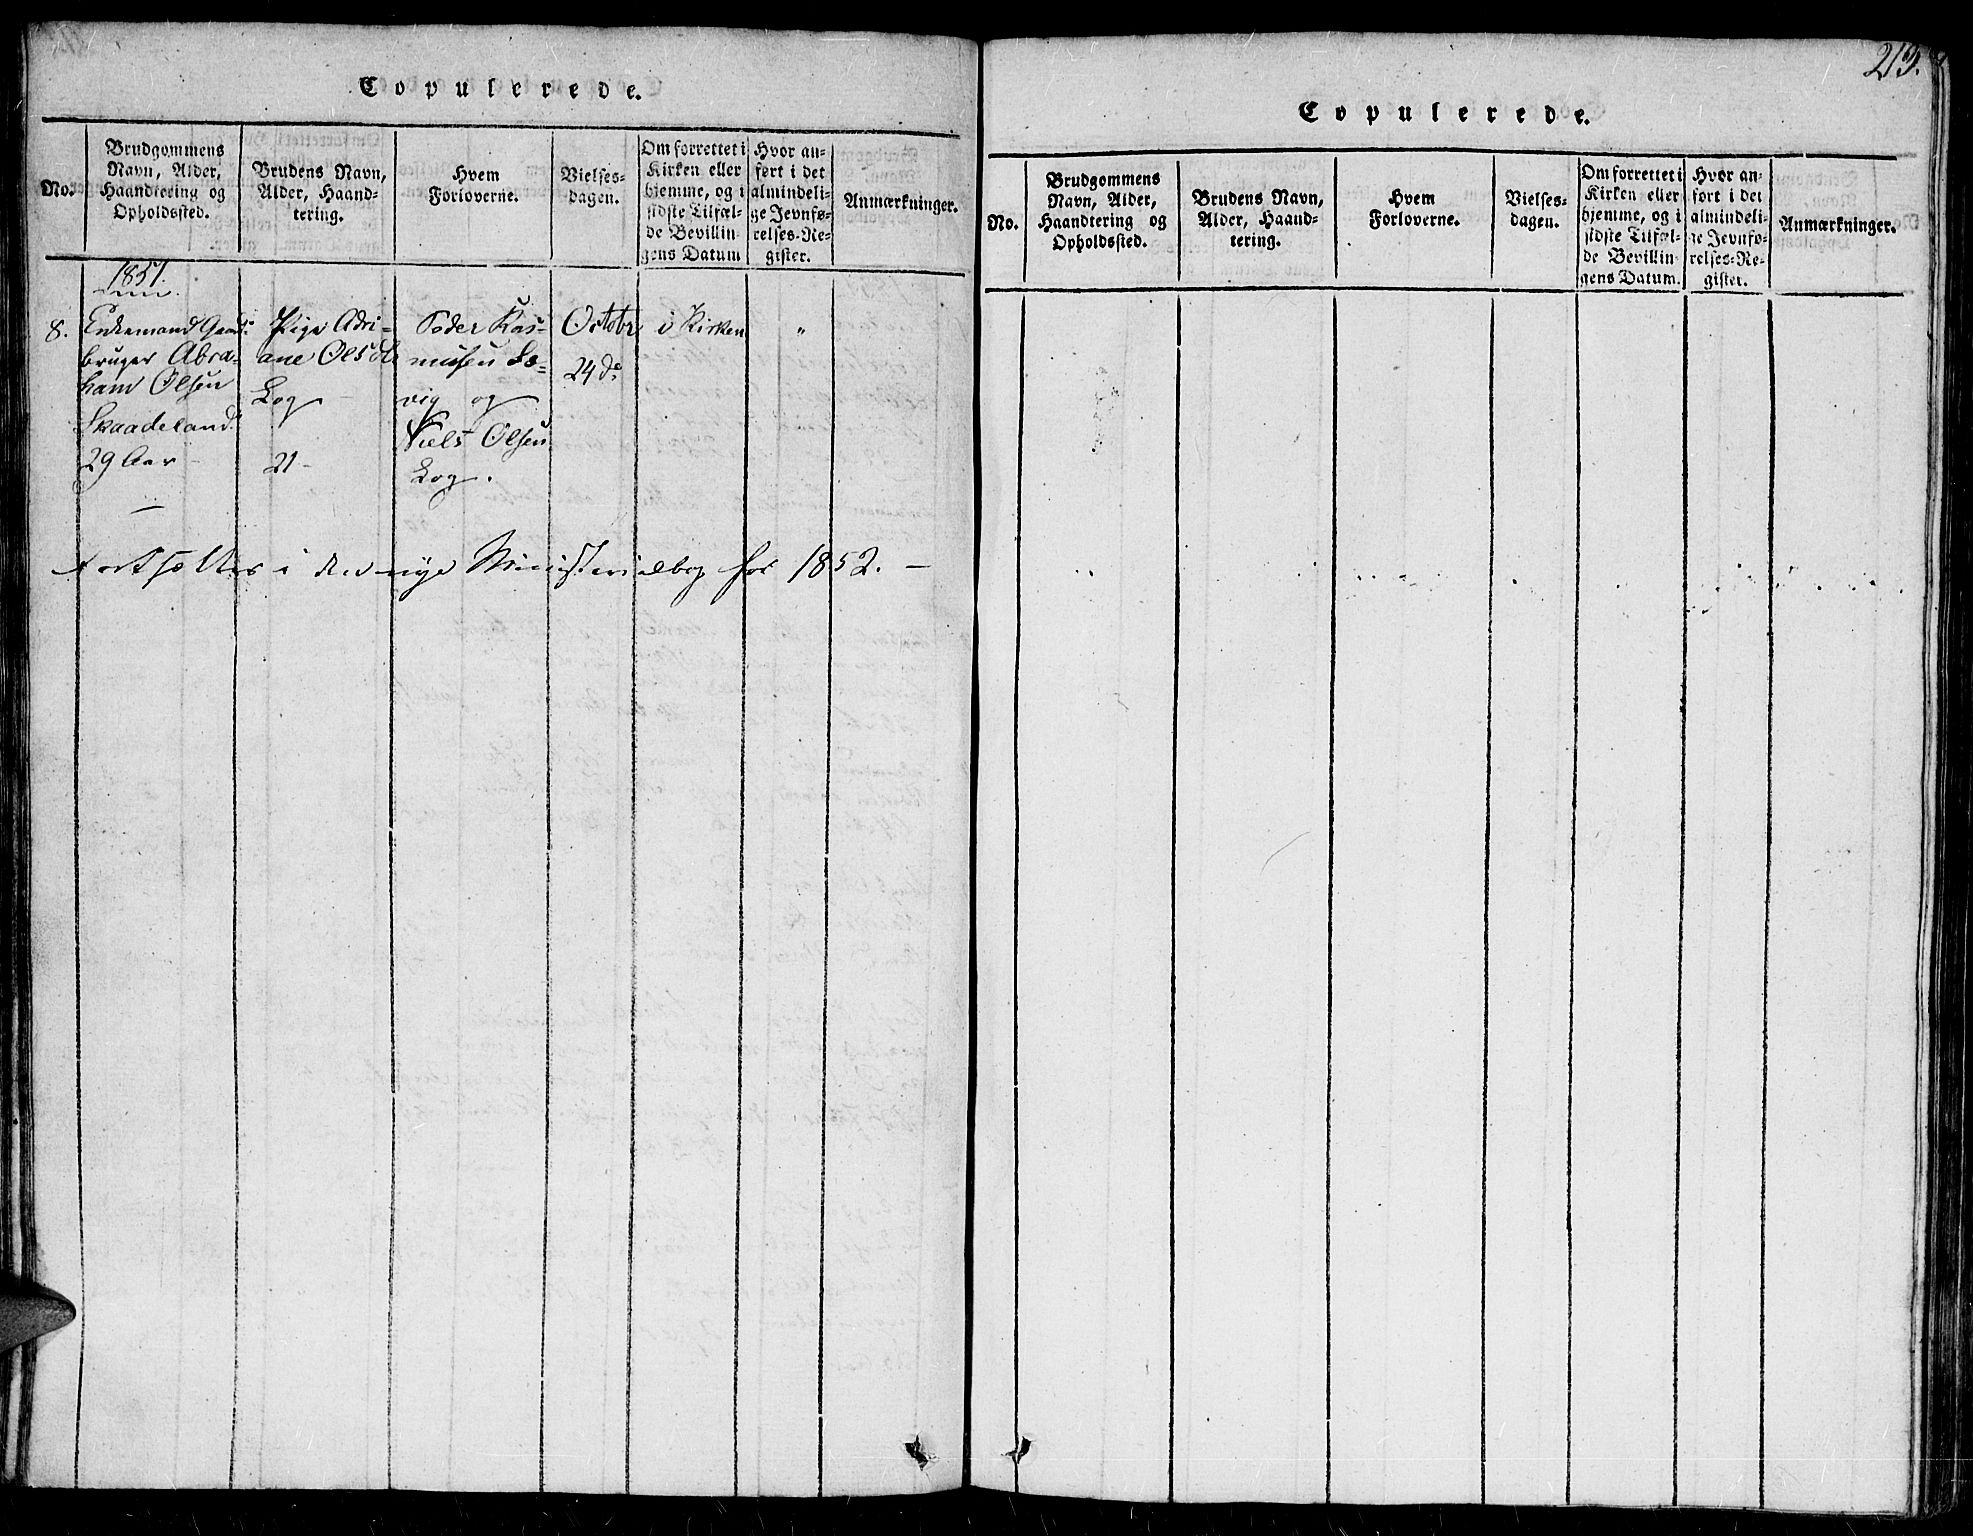 Copulerede.
No.
Brudgommens
Navn, Alder,
Haandtering og
Opholdssted.
Brudens Navn,
Alder, Haand-
tering.
Hvem
Forloverne.
Vielses-
dagen.
Om forrettet i
Kirken eller
hjemme, og i
sidste Tilfæl-
de Bevillin-
gens Datum
Hvor an-
ført i det
almindeli-
ge Jevnfø-
relses-Re-
gister.
Anmærkninger.
1851.
8.
Enkemand Gaard-
bruger Abra-
ham Olsen
Skaadeland
29 Aar -
Pige Adri-
ane Olsdtr
Log -
21 -
Peder Ras-
musen Se-
vig og
Niels Olsen
Log.
Octobr
24de
i Kirken
"
Fortsættes i den nye Ministerialbog for 1852. -
213.
Copulerede.
No.
Brudgommens
Navn, Alder,
Haandtering og
Opholdssted.
Brudens Navn,
Alder, Haand-
tering.
Hvem
Forloverne.
Vielses-
dagen.
Om forrettet i
Kirken eller
hjemme, og i
sidste Tilfæl-
de Bevillin-
gens Datum.
Hvor an-
ført i det
almindeli-
ge Jevnfø-
relses-Re-
gister.
Anmærkninger.